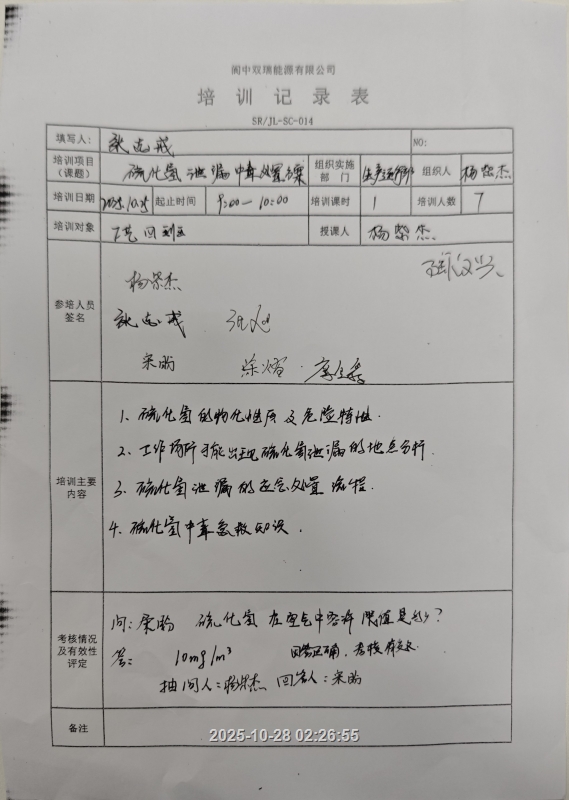 阆中双瑞能源有限公司
培 训 记 录 表
SR/JL-SC-014
填写人: NO:
培训项目(课题) 硫化氢泄漏中毒处置 组织实施部 门 生产运行部 组织人 杨紫杰
培训日期 2025.10.25 起止时间 9:00—10:00 培训课时 1 培训人数 7
培训对象 授课人 杨紫杰
参培人员签名
杨紫杰
宋昀
培训主要内容
1. 硫化氢的物化性质及危险特性.
2. 工作场所可能出现硫化氢泄漏的地点分析.
3. 硫化氢泄漏的应急处置流程.
4. 硫化氢中毒急救知识.
考核情况及有效性评定
问: 硫化氢在空气中容许限值是多少?
答: 10mg/m³ 回答正确,考核有效.
抽问人:杨紫杰 回答人:宋昀
备注
2025-10-28 02:26:55